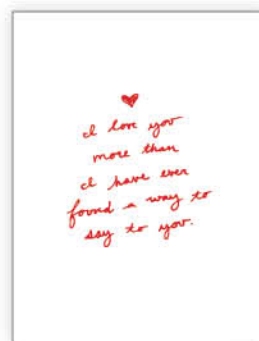 I love you
more than
I have ever
found a way to
say to you.